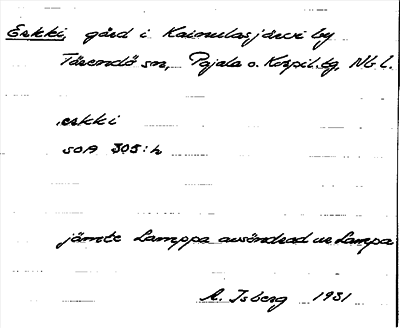 Erkki, gård i Kainulasjärvi by
Tärendö sn, Pajala o. Korpil. tg, Nb. l.
erkki
SOA 305:h
jämte Lamppa avsöndrad ur Lampa
A. Isberg 1931